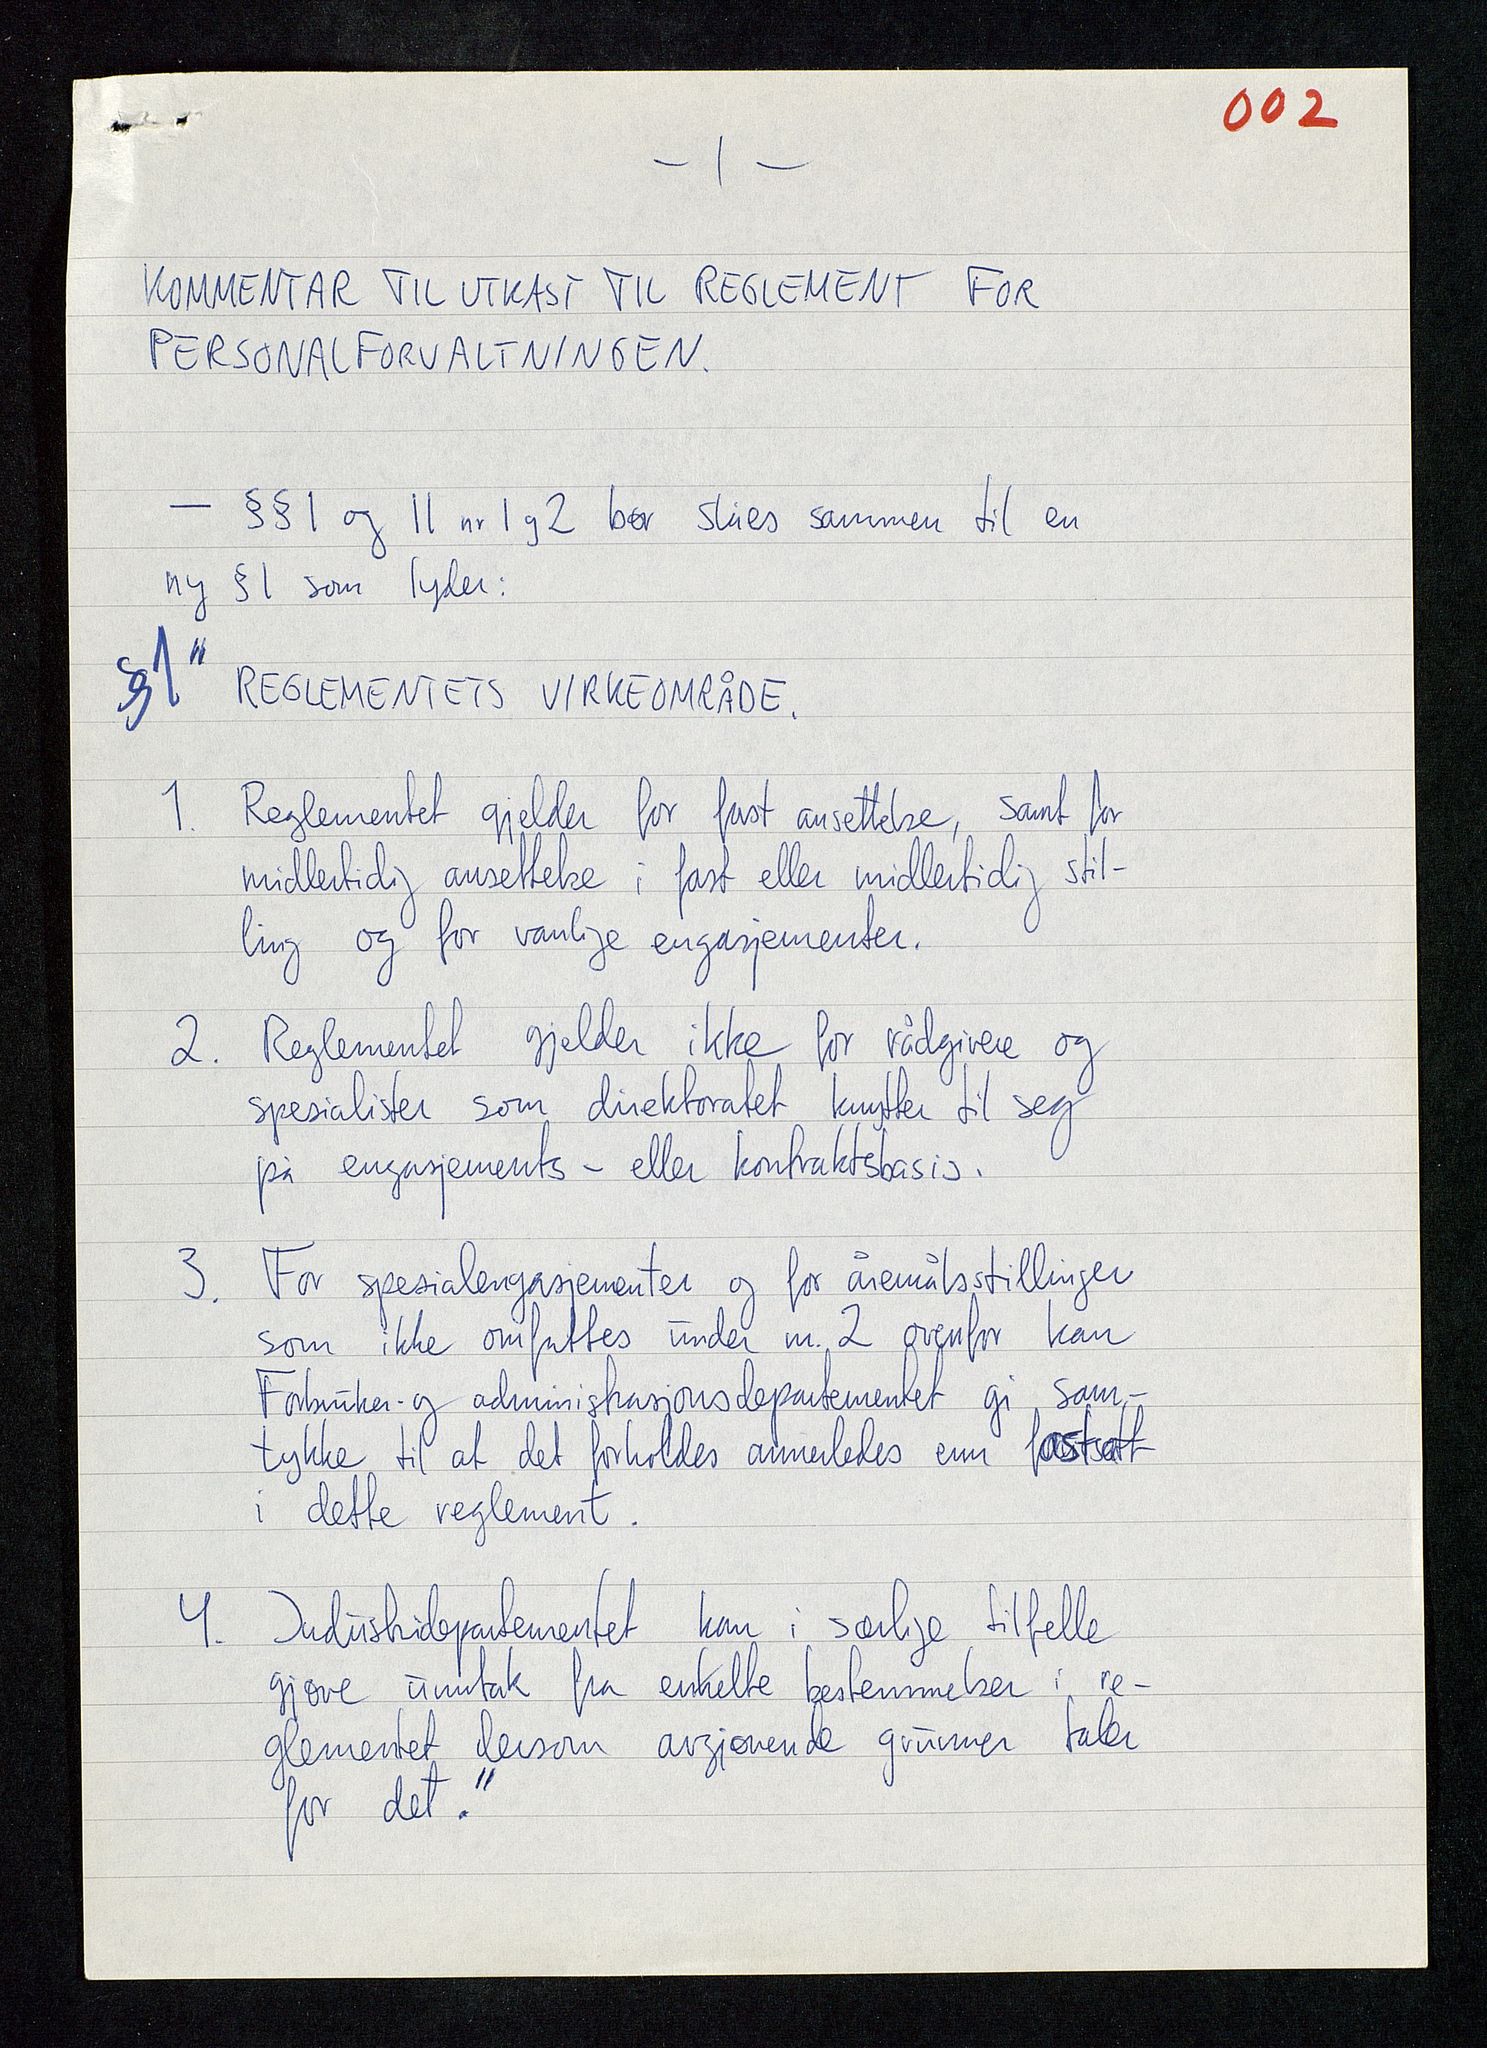 002
- 1 -
KOMMENTAR TIL UTKAST TIL REGLEMENT FOR
PERSONALFORVALTNINGEN.
— §§ 1 og 11 nr 1 og 2 bør slåes sammen til en
ny § 1 som lyder:
§1 " REGLEMENTETS VIRKEOMRÅDE.
1. Reglementet gjelder for fast ansettelse, samt for
midlertidig ansettelse i fast eller midlertidig stil-
ling og for vanlige engasjementer.
2. Reglementet gjelder ikke for rådgivere og
spesialister som direktoratet knytter til seg
på engasjements- eller kontraktsbasis.
3. For spesialengasjementer og for åremålsstillinger
som ikke omfattes under nr. 2 ovenfor kan
Forbruker- og administrasjonsdepartementet gi sam-
tykke til at det forholdes annerledes enn fastsatt
i dette reglement.
4. Industridepartementet kan i særlige tilfelle
gjøre unntak fra enkelte bestemmelser i re-
glementet dersom avgjørende grunner taler
for det."